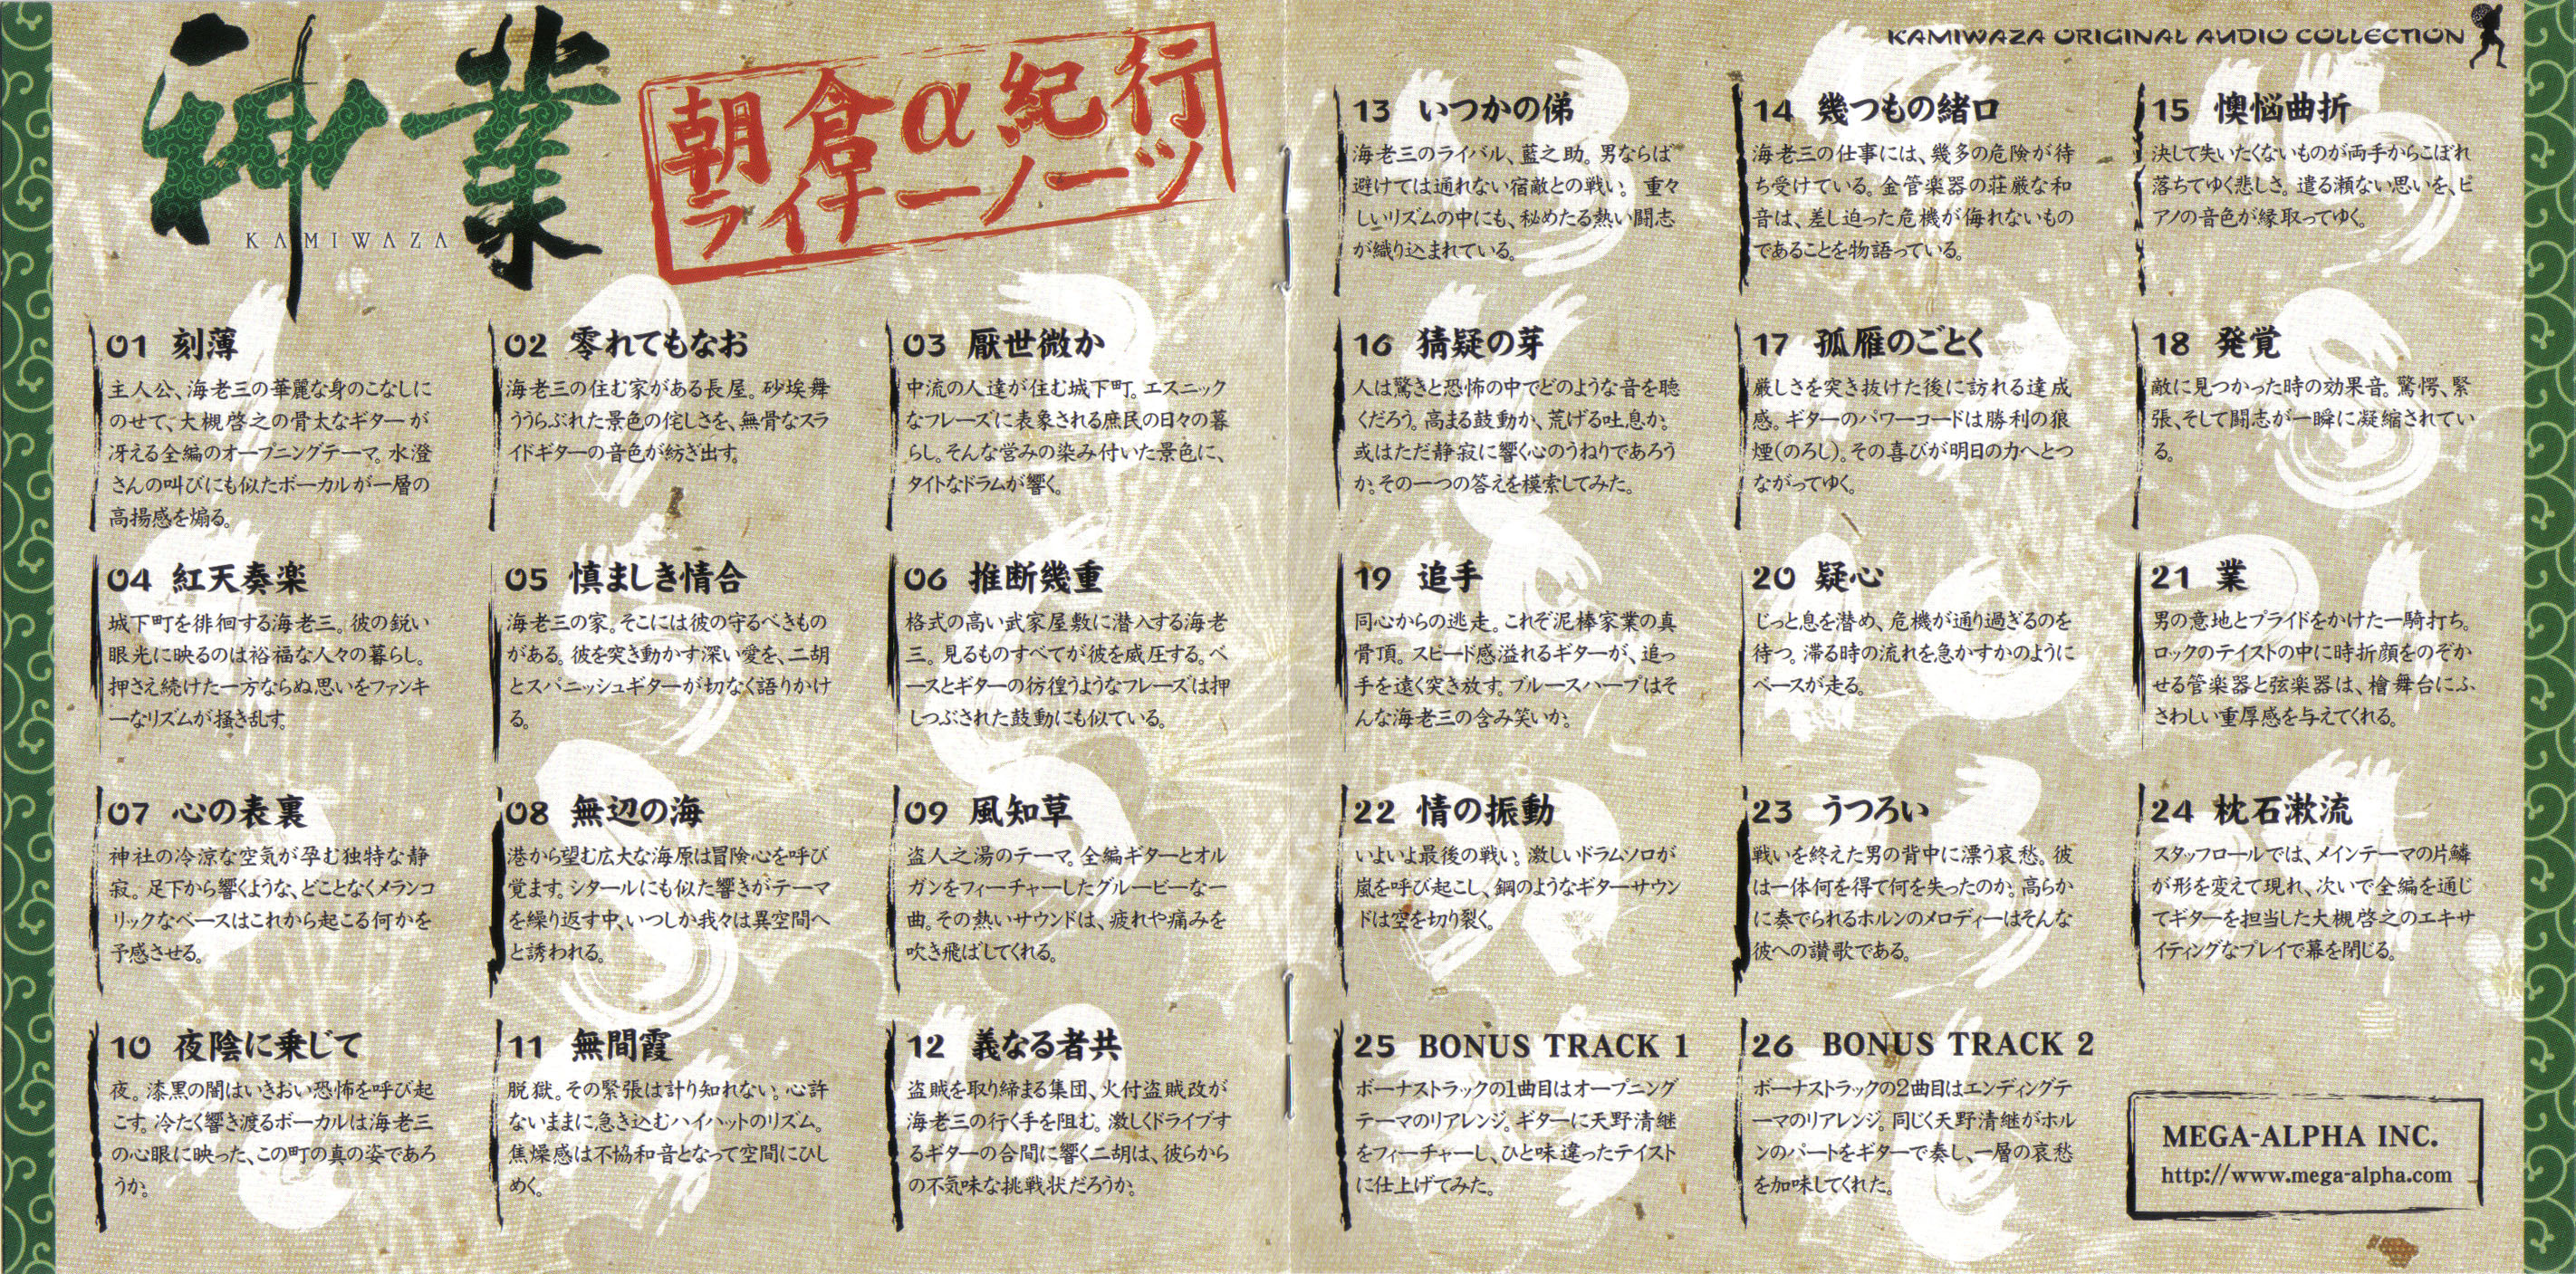 神業
KAMIWAZA
朝倉α紀行
ライナーノーツ
01 刻薄
主人公、海老三の華麗な身のこなしに
のせて、大槻啓之の骨太なギターが
冴える全編のオープニングテーマ。水澄
さんの叫びにも似たボーカルが一層の
高揚感を煽る。
02 零れてもなお
海老三の住む家がある長屋。砂埃舞
ううらぶれた景色の侘しさを、無骨なスラ
イドギターの音色が紡ぎ出す。
03 厭世微か
中流の人達が住む城下町。エスニック
なフレーズに表象される庶民の日々の暮
らし。そんな営みの染み付いた景色に、
タイトなドラムが響く。
04 紅天奏楽
城下町を徘徊する海老三。彼の鋭い
眼光に映るのは裕福な人々の暮らし。
押さえ続けた一方ならぬ思いをファンキ
ーなリズムが掻き乱す。
05 慎ましき情合
海老三の家。そこには彼の守るべきもの
がある。彼を突き動かす深い愛を、二胡
とスパニッシュギターが切なく語りかけ
る。
06 推断幾重
格式の高い武家屋敷に潜入する海老
三。見るものすべてが彼を威圧する。ベ
ースとギターの彷徨うようなフレーズは押
しつぶされた鼓動にも似ている。
07 心の表裏
神社の冷涼な空気が孕む独特な静
寂。足下から響くような、どことなくメランコ
リックなベースはこれから起こる何かを
予感させる。
08 無辺の海
港から望む広大な海原は冒険心を呼び
覚ます。シタールにも似た響きがテーマ
を繰り返す中、いつしか我々は異空間へ
と誘われる。
09 風知草
盗人之湯のテーマ。全編ギターとオル
ガンをフィーチャーしたグルービーな一
曲。その熱いサウンドは、疲れや痛みを
吹き飛ばしてくれる。
10 夜陰に乗じて
夜。漆黒の闇はいきおい恐怖を呼び起
こす。冷たく響き渡るボーカルは海老三
の心眼に映った、この町の真の姿であろ
うか。
11 無間霞
脱獄。その緊張は計り知れない。心許
ないままに急き込むハイハットのリズム。
焦燥感は不協和音となって空間にひし
めく。
12 義なる者共
盗賊を取り締まる集団、火付盗賊改が
海老三の行く手を阻む。激しくドライブす
るギターの合間に響く二胡は、彼らから
の不気味な挑戦状だろうか。
KAMIWAZA ORIGINAL AUDIO COLLECTION
13 いつかの俤
海老三のライバル、藍之助。男ならば
避けては通れない宿敵との戦い。重々
しいリズムの中にも、秘めたる熱い闘志
が織り込まれている。
14 幾つもの緒口
海老三の仕事には、幾多の危険が待
ち受けている。金管楽器の荘厳な和
音は、差し迫った危機が侮れないもの
であることを物語っている。
15 懊悩曲折
決して失いたくないものが両手からこぼれ
落ちてゆく悲しさ。遣る瀬ない思いを、ピ
アノの音色が縁取ってゆく。
16 猜疑の芽
人は驚きと恐怖の中でどのような音を聴
くだろう。高まる鼓動か、荒げる吐息か。
或はただ静寂に響く心のうねりであろう
か。その一つの答えを模索してみた。
17 孤雁のごとく
厳しさを突き抜けた後に訪れる達成
感。ギターのパワーコードは勝利の狼
煙（のろし）。その喜びが明日の力へとつ
ながってゆく。
18 発覚
敵に見つかった時の効果音。驚愕、緊
張、そして闘志が一瞬に凝縮されてい
る。
19 追手
同心からの逃走。これぞ泥棒家業の真
骨頂。スピード感溢れるギターが、追っ
手を遠く突き放す。ブルースハープはそ
んな海老三の含み笑いか。
20 疑心
じっと息を潜め、危機が通り過ぎるのを
待つ。滞る時の流れを急かすかのように
ベースが走る。
21 業
男の意地とプライドをかけた一騎打ち。
ロックのテイストの中に時折顔をのぞか
せる管楽器と弦楽器は、檜舞台にふ
さわしい重厚感を与えてくれる。
22 情の振動
いよいよ最後の戦い。激しいドラムソロが
嵐を呼び起こし、鋼のようなギターサウン
ドは空を切り裂く。
23 うつろい
戦いを終えた男の背中に漂う哀愁。彼
は一体何を得て何を失ったのか。高らか
に奏でられるホルンのメロディーはそんな
彼への讃歌である。
24 枕石漱流
スタッフロールでは、メインテーマの片鱗
が形を変えて現れ、次いで全編を通じ
てギターを担当した大槻啓之のエキサ
イティングなプレイで幕を閉じる。
25 BONUS TRACK 1
ボーナストラックの1曲目はオープニング
テーマのリアレンジ。ギターに天野清継
をフィーチャーし、ひと味違ったテイスト
に仕上げてみた。
26 BONUS TRACK 2
ボーナストラックの2曲目はエンディングテ
ーマのリアレンジ。同じく天野清継がホル
ンのパートをギターで奏し、一層の哀愁
を加味してくれた。
MEGA-ALPHA INC.
http://www.mega-alpha.com